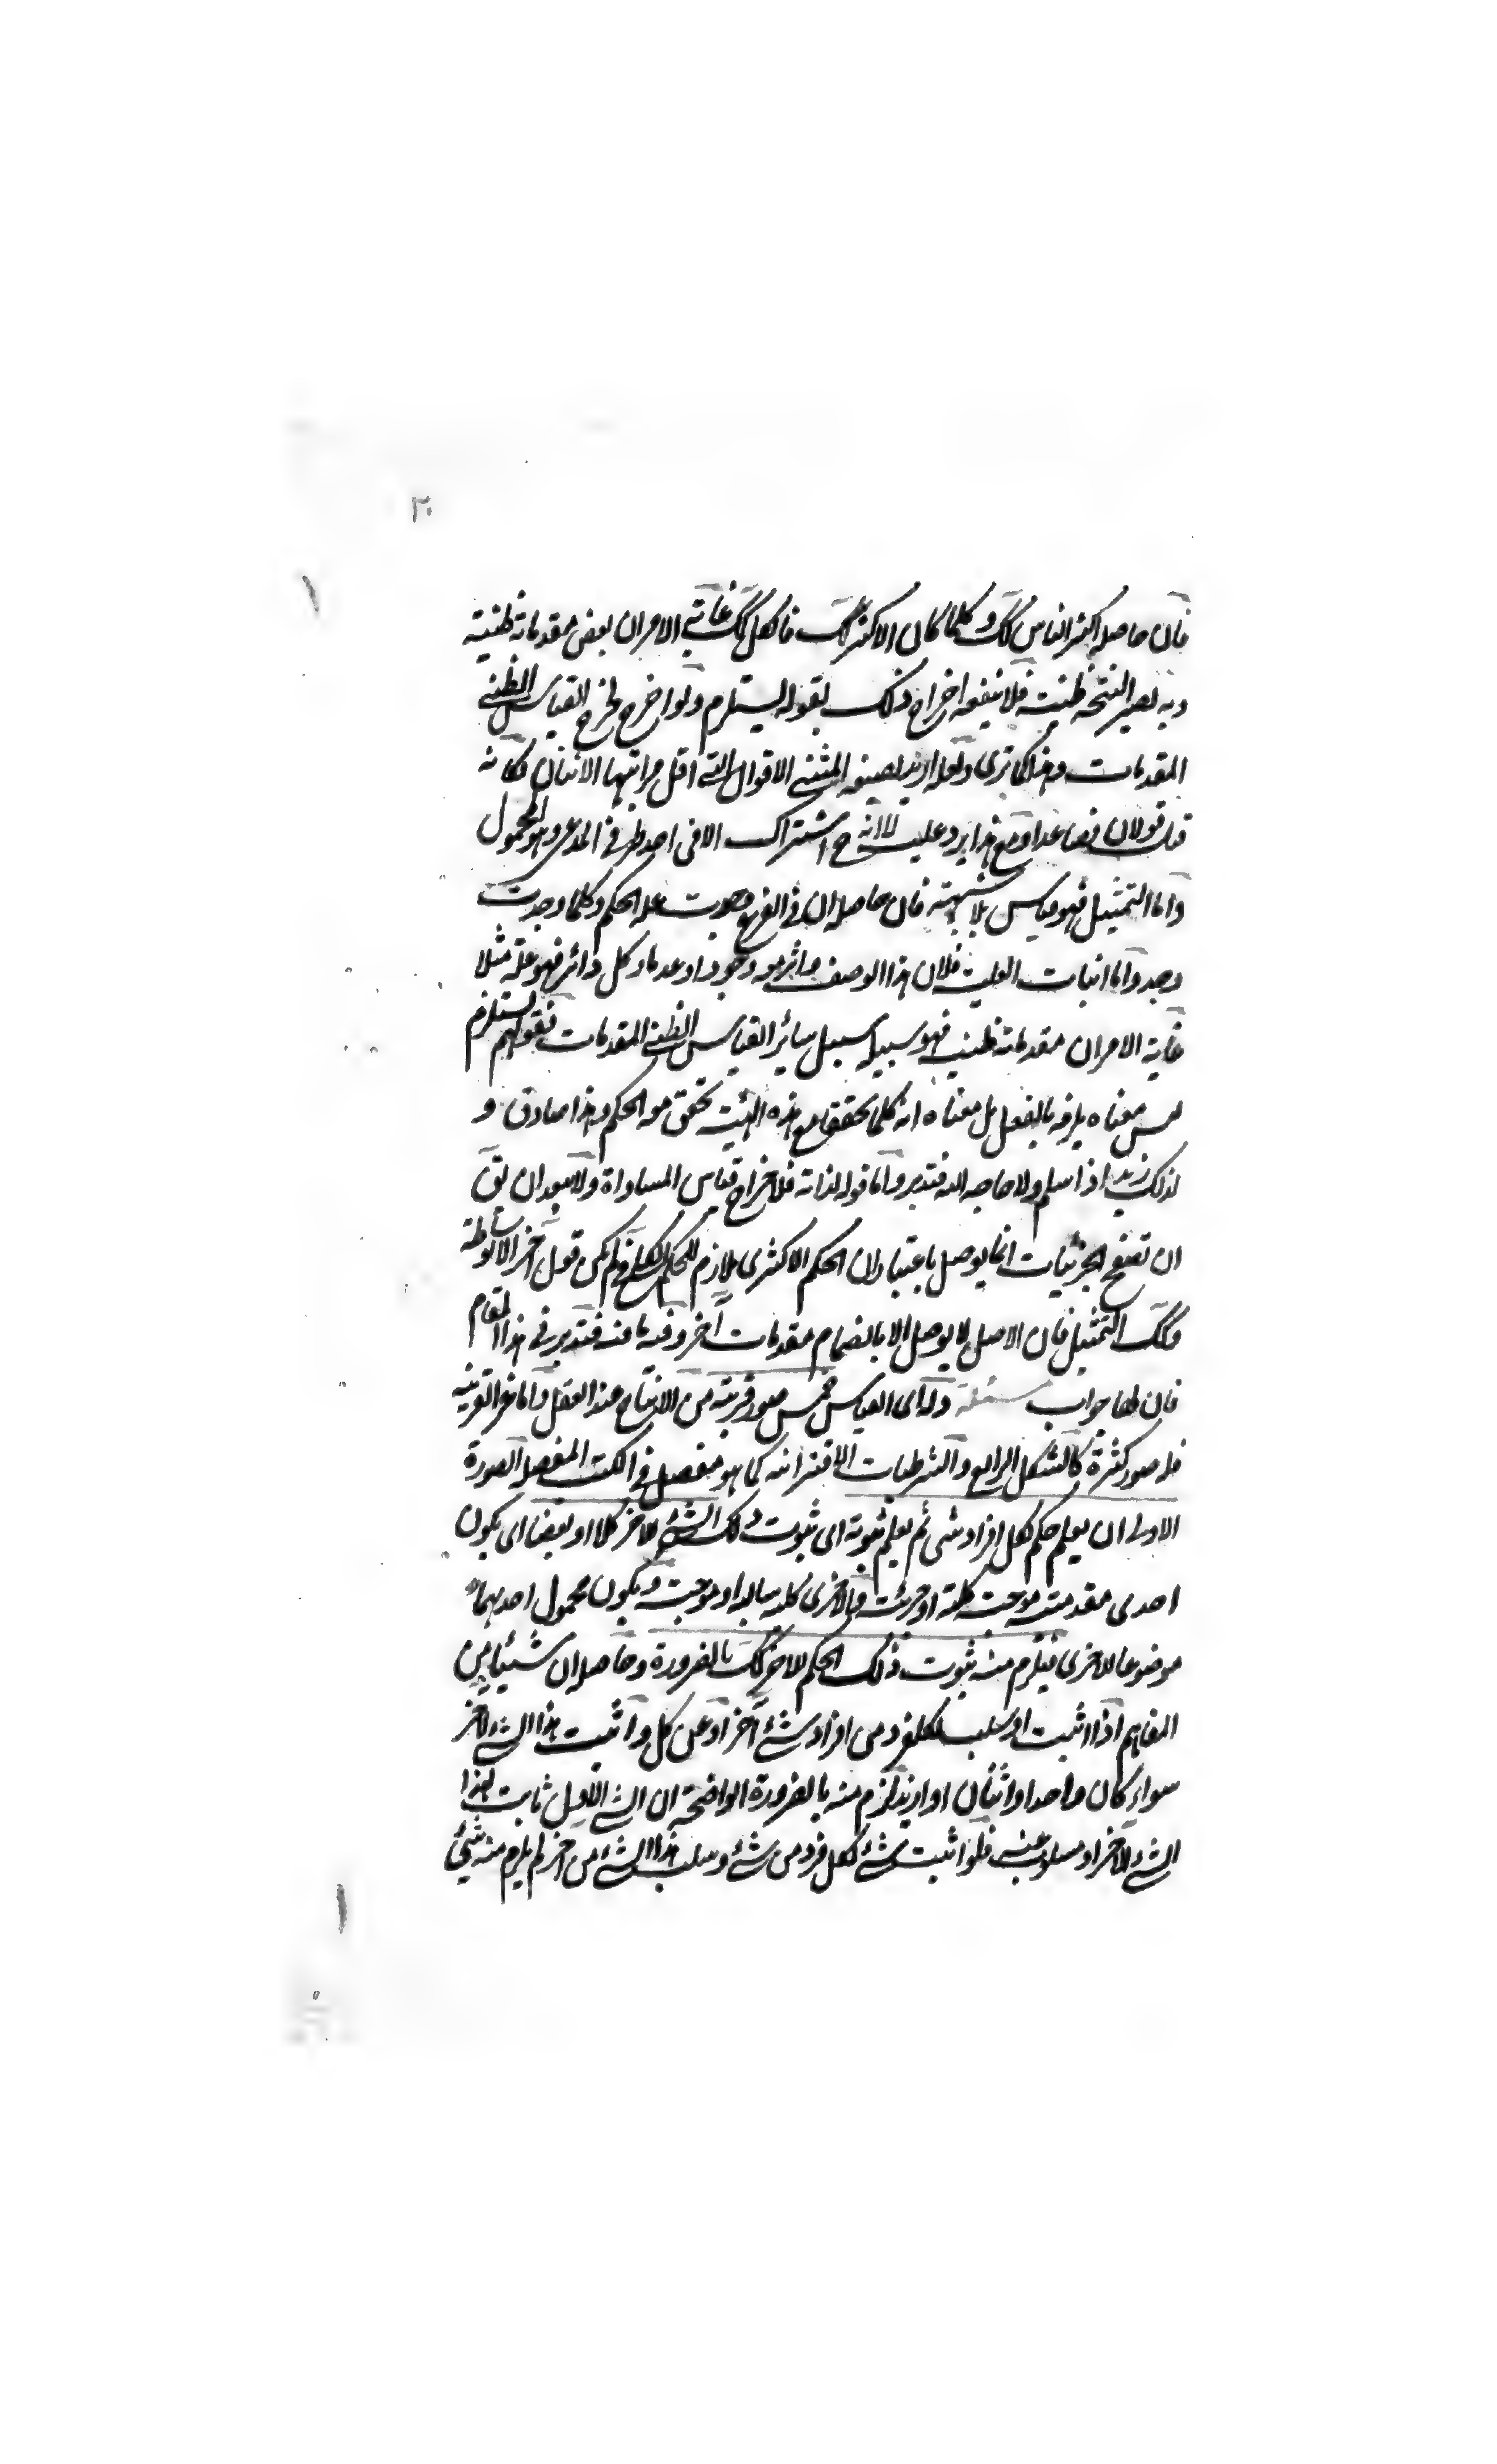 ٢٠
فان حاصله اكثر الناس كك وكلما كان الاكثر كك فالكل كك غاية الامر ان بعض مقدماته ظنية
وبه تصير النتيجة ظنية فلا ينفعه اخراج ذلك بقوله يستلزم ولو اخرج لخرج القياس الظني
المقدمات وهذا كما ترى ولعله اريد بصيغة المثنى الاقوال التي اقل مراتبها الاثنان فكانه
قال قولان فصاعدا ومع هذا يرد عليه انه ح اشتراك الا في احد طرفي المدعى وهو المحمول
واما التمثيل فهو قياس بلا شبهة فان حاصله ان في الفرع وجدت علة الحكم وكلما وجدت
وجد واما اثبات العلية فلان هذا الوصف دائر معه وجودا وعدما وكل دائر فهو علة مثلا
غاية الامر ان مقدماته ظنية فهو سبيله سبيل سائر القياس الظني المقدمات فقولهم يستلزم
ليس معناه يلزمه بالفعل بل معناه انه كلما تحقق مع هذه الهيئة تحقق معه الحكم وهذا صادق و
لذلك زيد اذا سلم ولا حاجة اليه فتدبر واما قوله لذاته فلاخراج قياس المساواة ولا يبعد ان يق
ان تصفح الجزئيات انما يوصل باعتبار ان الحكم الاكثري ملازم للحكم الكلي فلم يكن قول آخر الا بواسطة
وكك التمثيل فان الاصل لا يوصل الا بانضمام مقدمات اخر وفيه ما فيه فتدبر في هذا المقام
فان لها جواب مسئلة وله اى القياس خمس صور قريبة من الانتاج عند العقل واما غير القريبة
فله صور كثيرة كالشكل الرابع والشرطيات الاقترانية كما هو مفصل في الكتب المفصلة الصورة
الاولى ان يعلم حكم لكل افراد شئ ثم يعلم ثبوته اى ثبوت ذلك الشئ لآخر كلا او بعضا اى يكون
احدى مقدمتيه موجبة كلية او جزئية والاخرى كلية سالبة او موجبة ويكون محمول احديهما
موضوعا للاخرى فيلزم منه ثبوت ذلك الحكم للاخر كك بالضرورة وحاصله ان شيئا من
المفاهيم اذا اثبت او سلب لكل فرد من افراد شئ آخر او عن كل واثبت هذا الشئ لآخر
سواء كان واحدا او اثنان او ازيد لزم منه بالضرورة الواضحة ان الشئ الاول ثابت لهذا
الشئ الآخر او مسلوب عنه فلو اثبت شئ لكل فرد من شئ وسلب هذا الشئ من آخر لم يلزم منه شئ